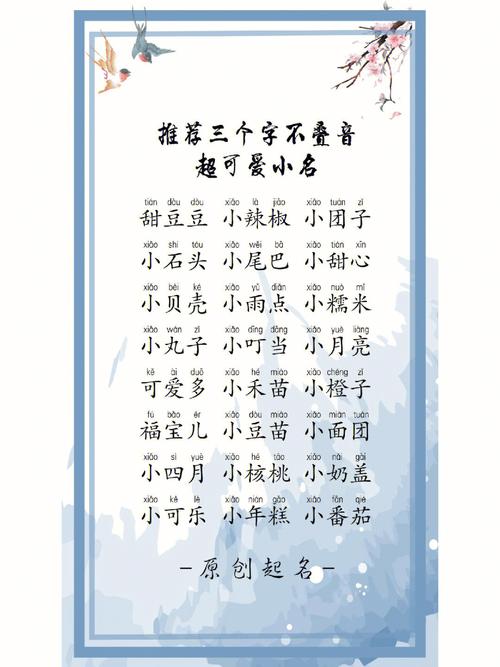 推荐三个字不叠音
超可爱小名
tián dòu dòu xiǎo là jiāo xiǎo tuán zǐ
甜豆豆 小辣椒 小团子
xiǎo shí tóu xiǎo wěi bā xiǎo tián xīn
小石头 小尾巴 小甜心
xiǎo bèi ké xiǎo yǔ diǎn xiǎo nuò mǐ
小贝壳 小雨点 小糯米
xiǎo wán zǐ xiǎo dīng dāng xiǎo yuè liàng
小丸子 小叮当 小月亮
kě ài duō xiǎo hé miáo xiǎo chéng zǐ
可爱多 小禾苗 小橙子
fú bǎo ér xiǎo dòu miáo xiǎo miàn tuán
福宝儿 小豆苗 小面团
xiǎo sì yuè xiǎo hé táo xiǎo nǎi gài
小四月 小核桃 小奶盖
xiǎo kě lè xiǎo nián gāo xiǎo fān qié
小可乐 小年糕 小番茄
-原创起名-